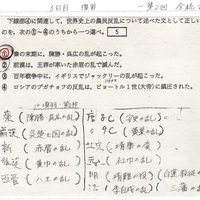 3日目 復習 一第2回
下線部④に関連して、世界史上の農民反乱について述べた文として正しい
ものを、次の①～④のうちから一つ選べ。 5
①秦の末期に、陳勝・呉広の乱が起こった。
② 前漢は、王莽が率いた赤眉の乱で滅んだ。
③ 百年戦争中に、イギリスでジャックリーの乱が起こった。
④ ロシアのプガチョフの反乱は、ピョートル1世(大帝)に鎮圧された。
秦 (陳勝・呉広の乱)
前漢 (呉楚七国の乱)
新 (赤眉の乱)
後漢 (黄巾の乱)
西晋 (八王の乱)
9C (黄巣の乱)
北宋 (方臘の乱)
元 (紅巾の乱)
明
(李自成の乱)